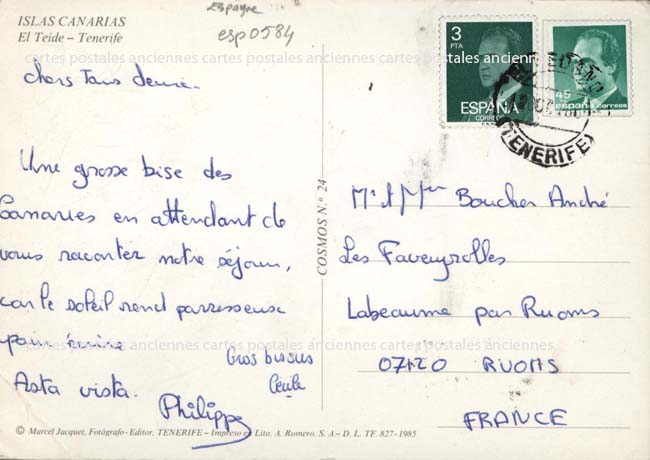 ISLAS CANARIAS
El Teide – Tenerife
Espagne
esp0584
cartes postales anciennes cartes postales anciennes cartes postales anciennes
chers tous deux.
3
PTA
ESPAÑA
CORREOS
45
españa correos
TENERIFE
Une grosse bise des
Canaries en attendant de
vous raconter notre séjour,
car le soleil rend paresseux
pour écrire
cartes postales anciennes cartes postales anciennes cartes postales anciennes
Gros bisous
Cécile
Asta vista.
Philippe
COSMOS N.º 24
Mr et Mme Boucher André
Les Faveyrolles
Labeaume par Ruoms
07120 RUOMS
FRANCE
© Marcel Jacquet, Fotógrafo-Editor, TENERIFE – Impreso en Lito. A. Romero, S. A. – D. L. TF. 827-1985